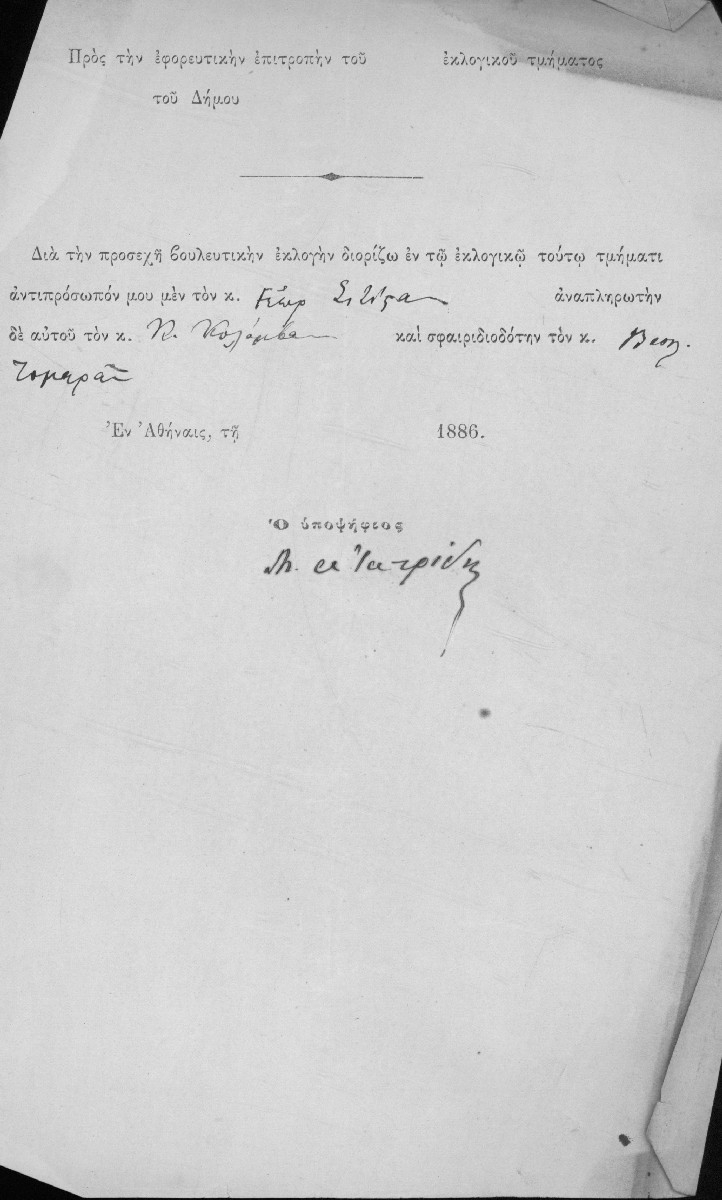 Πρὸς τὴν ἐφορευτικὴν ἐπιτροπὴν τοῦ ἐκλογικοῦ τμήματος
τοῦ Δήμου
Διὰ τὴν προσεχῆ βουλευτικὴν ἐκλογὴν διορίζω ἐν τῷ ἐκλογικῷ τούτῳ τμήματι
ἀντιπρόσωπόν μου μὲν τὸν κ. Γεώρ ἀναπληρωτὴν
δὲ αὐτοῦ τὸν κ. Κ. καὶ σφαιριδιοδότην τὸν κ.
Τομαρᾶ
Ἐν Ἀθήναις, τῇ 1886.
Ὁ ὑποψήφιος
Ἰατρίδης